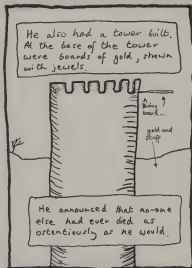 He also had a tower built.
At the base of the tower
were boards of gold, strewn
with jewels.
a
diving
board...
gold and
stuff
He announced that no-one
else had ever died as
ostentiously as he would.